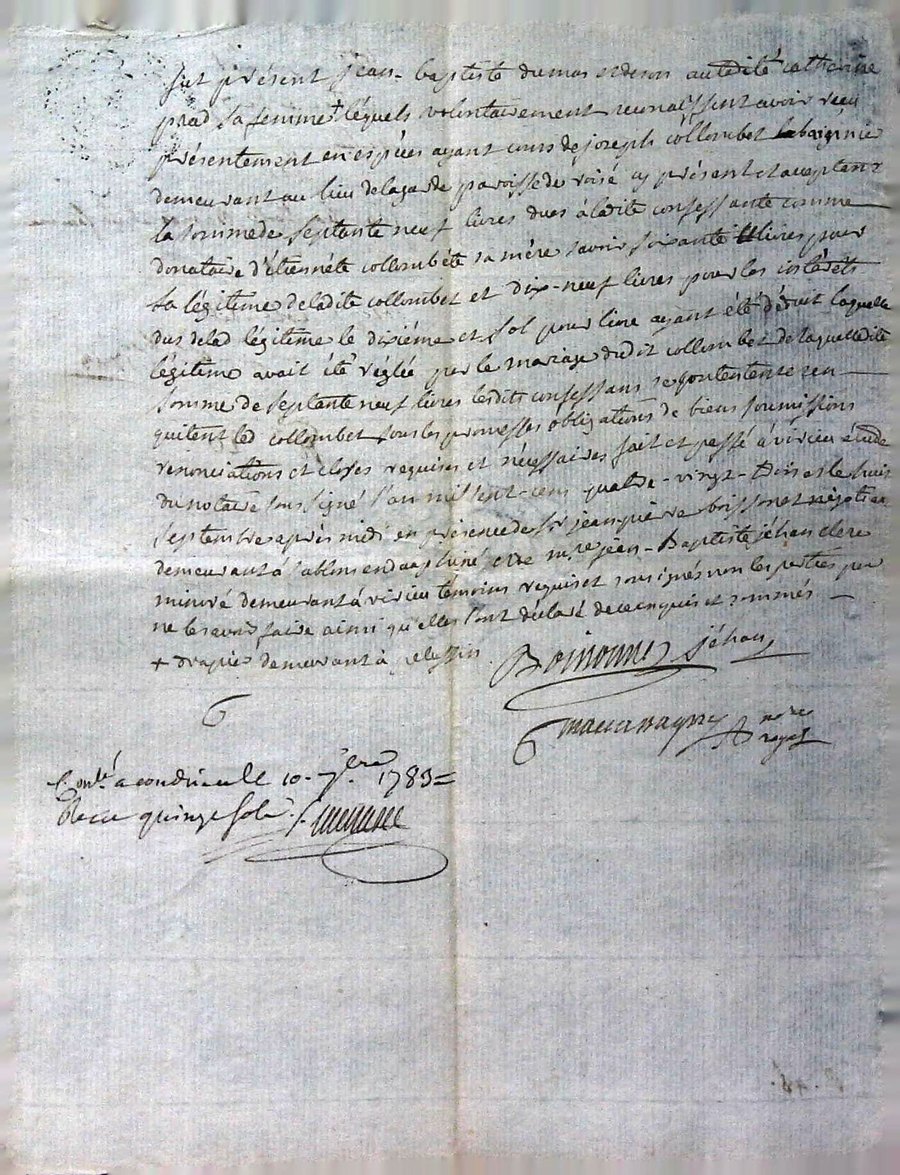 fut présent jean-baptiste dumas et de son autorité catherine
prad sa femme + léquels volontairement reconaissent avoir reçu
présentement en espèces ayant cours de joseph collombet
demeurant au lieu de lagarde paroisse de roisé cy présent et acceptant
la somme de septante neuf livres dues à ladite confessante comme
donataire d'étiennéte collombéte sa mére savoir soixante livres pour
sa légitime de ladite collombet et dix-neuf livres pour les intérêts
dus de lad légitime le dixiéme et sol pour livre ayant été déduit laquelle
légitime avait été réglée par le mariage dudit collombet de laquelle dite
somme de septante neuf livres lesdits confessans se contentent et en
quitent led collombet sous les promesses obligations de biens soumissions
renonciations et closes requises et nécessaires fait et passé à virieu étude
du notaire soussigné l'an mil sept-cens quatre-vingt-trois et le huit
septembre après midi en présence de sr jean pierre boissonet négotiant
demeurant à sablons en dauphiné et de mre jean-Baptiste jéhan clerc
minuté demeurant à virieu témoins requis et soussignés non les parties pour
ne le savoir faire ainsi qu'elles l'ont déclaré de ce enquis et sommés
+ drapier demeurant à pelussin
jéhan
nore
royal
Conlé a condrieu le 10. 7bre 1783
Reçu quinze sols